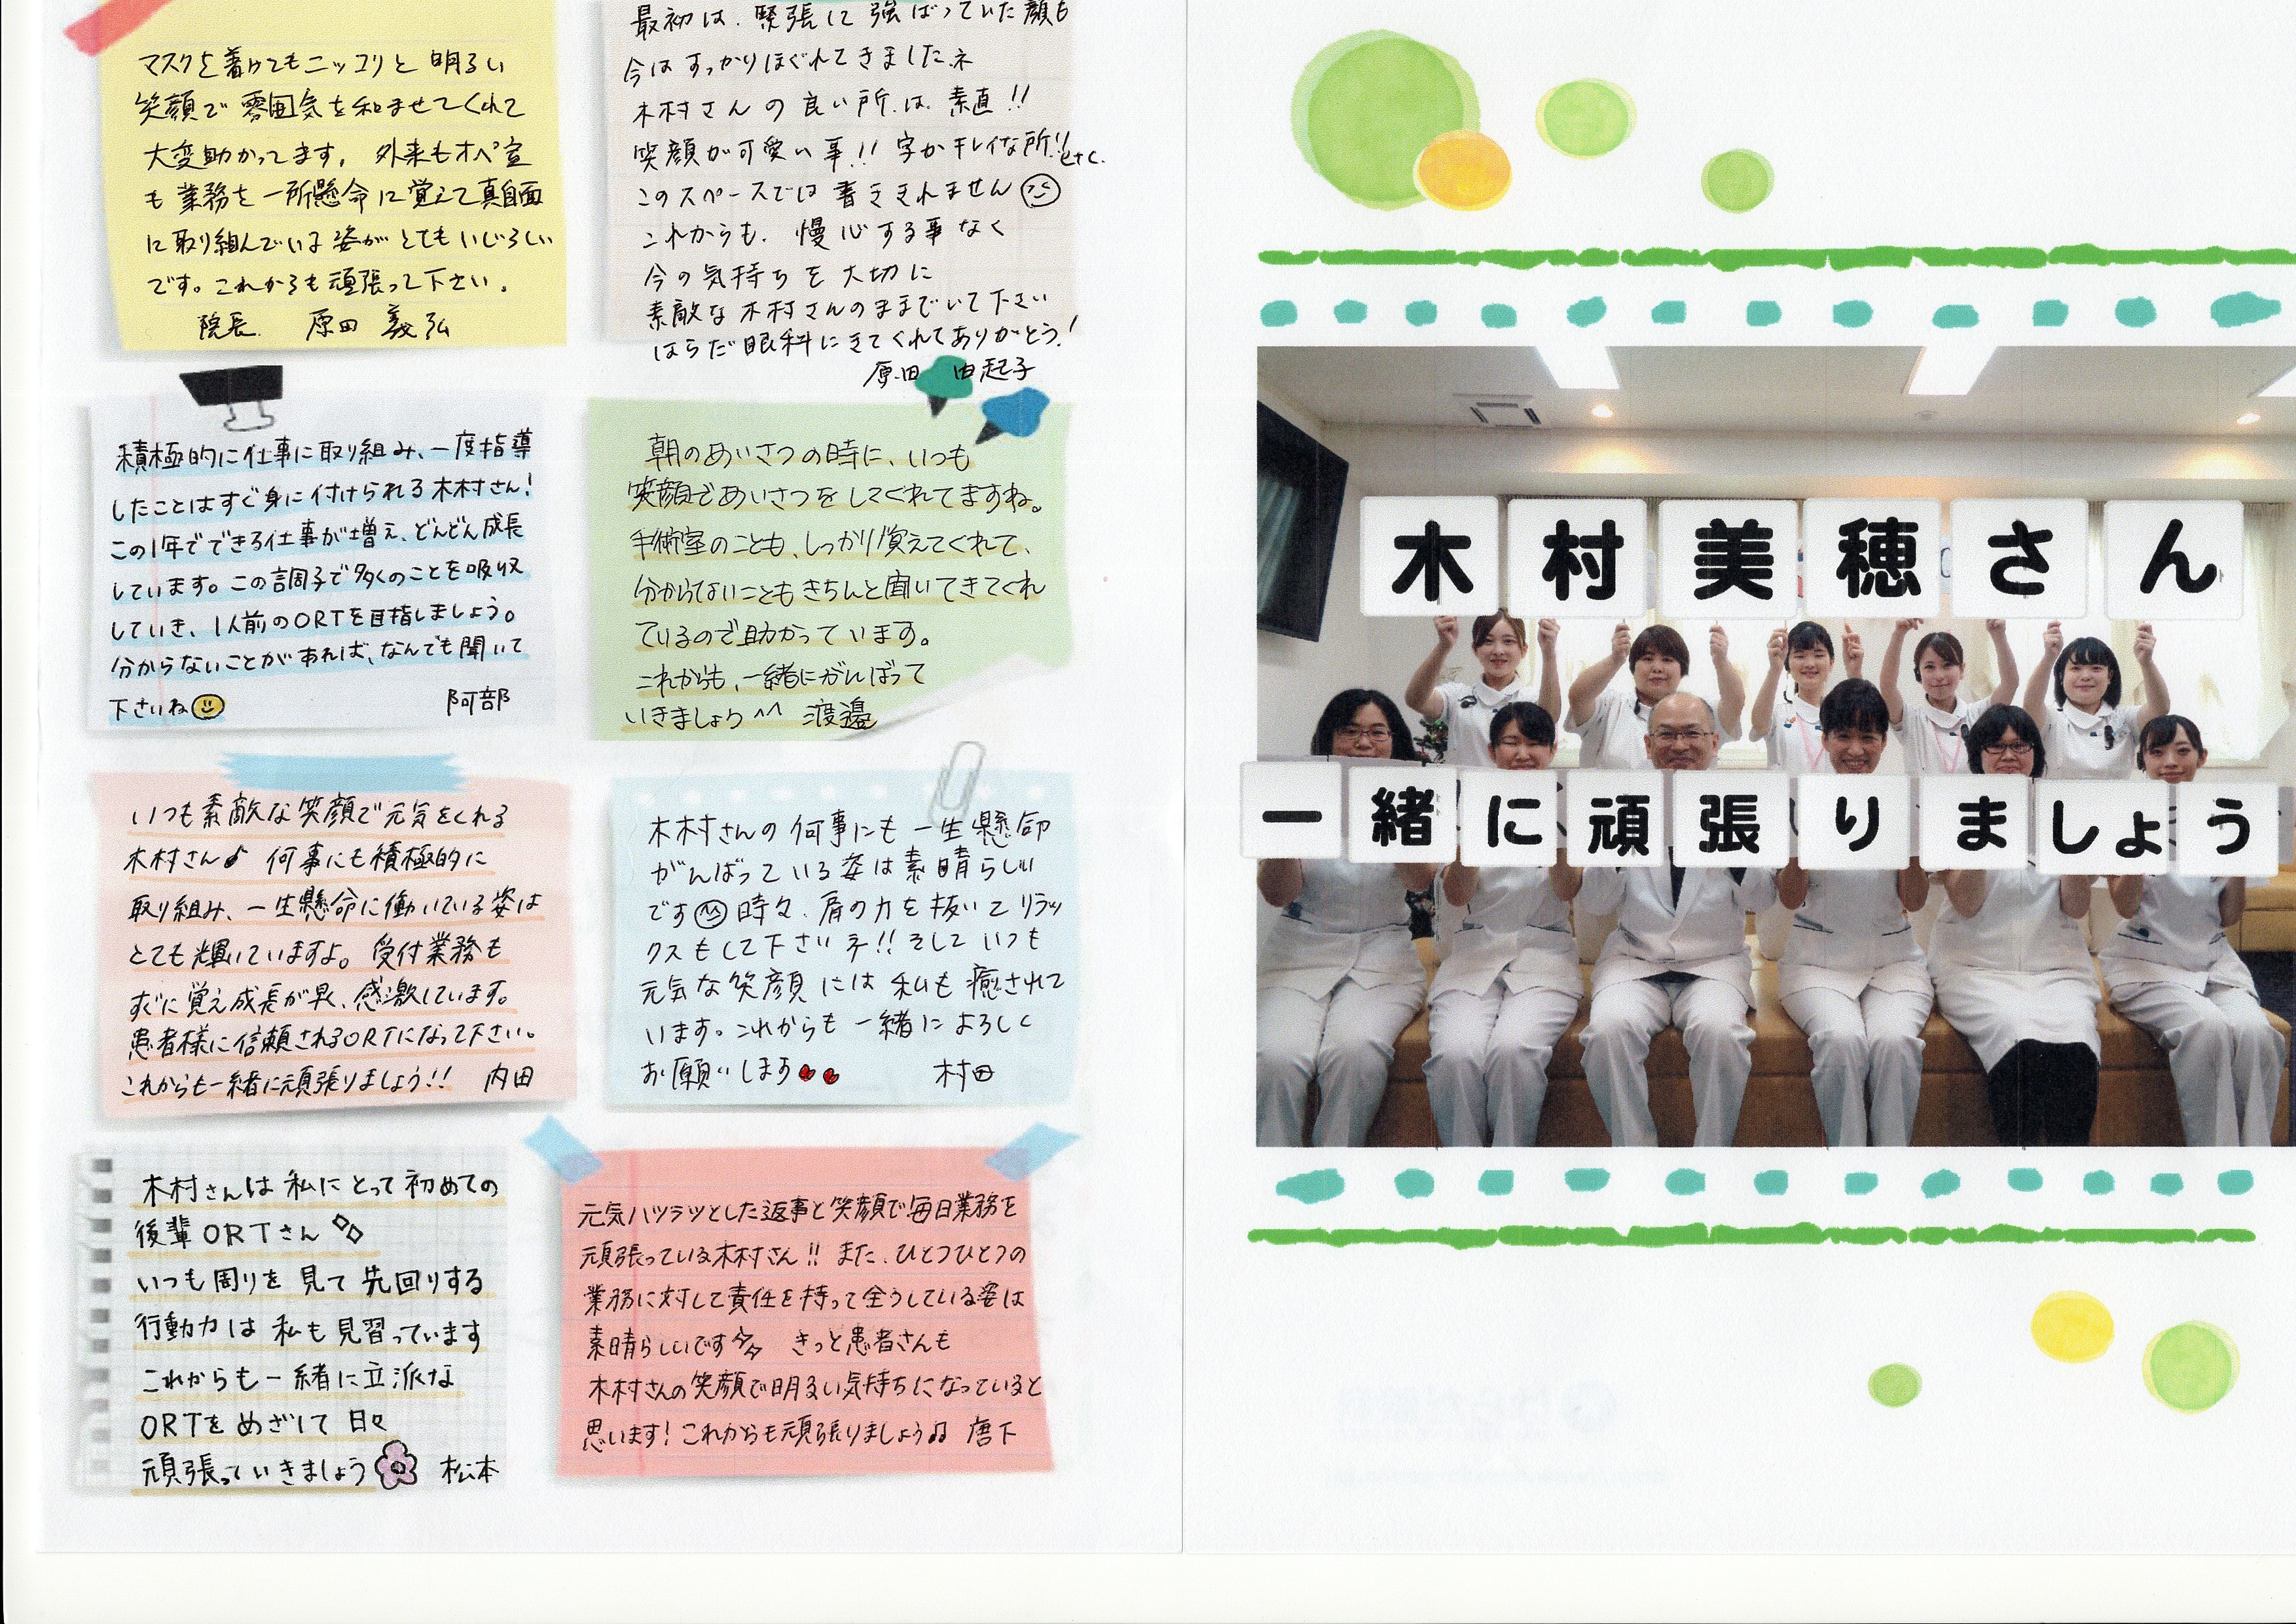 マスクを着けてもニッコリと明るい
笑顔で雰囲気を和ませてくれて
大変助かってます。外来もオペ室
も業務を一所懸命に覚えて真面目
に取り組んでいる姿がとてもいじらしい
です。これからも頑張って下さい。
院長 原田 義弘
最初は、緊張に強ばっていた顔も
今はすっかりほぐれてきましたネ
木村さんの良い所は、素直!!
笑顔が可愛い事!! 字がキレイな所!! etc.
このスペースでは書ききれません
これからも、慢心する事なく
今の気持ちを大切に
素敵な木村さんのままでいて下さい
はらだ眼科にきてくれてありがとう!
原田 由起子
積極的に仕事に取り組み、一度指導
したことはすぐ身に付けられる木村さん!
この1年でできる仕事が増え、どんどん成長
しています。この調子で多くのことを吸収
していき、1人前のORTを目指しましょう。
分からないことがあれば、なんでも聞いて
下さいね 阿部
朝のあいさつの時に、いつも
笑顔であいさつをしてくれてますね。
手術室のことも、しっかり覚えてくれて、
分からないこともきちんと聞いてきてくれ
ているので助かっています。
これからも、一緒にがんばって
いきましょう^^ 渡邉
いつも素敵な笑顔で元気をくれる
木村さん♪ 何事にも積極的に
取り組み、一生懸命に働いている姿は
とても輝いていますよ。受付業務も
すぐに覚え成長が早く、感激しています。
患者様に信頼されるORTになって下さい。
これからも一緒に頑張りましょう!! 内田
木村さんの何事にも一生懸命
がんばっている姿は素晴らしい
です 時々、肩の力を抜いてリラッ
クスもして下さいネ!! そしていつも
元気な笑顔には私も癒されて
います。これからも一緒によろしく
お願いします 村田
木村さんは私にとって初めての
後輩ORTさん
いつも周りを見て先回りする
行動力は私も見習っています
これからも一緒に立派な
ORTをめざして日々
頑張っていきましょう 松本
元気ハツラツとした返事と笑顔で毎日業務を
頑張っている木村さん!! また、ひとつひとつの
業務に対して責任を持って全うしている姿は
素晴らしいです きっと患者さんも
木村さんの笑顔で明るい気持ちになっていると
思います! これからも頑張りましょう♫ 唐下
木村美穂さん
一緒に頑張りましょう